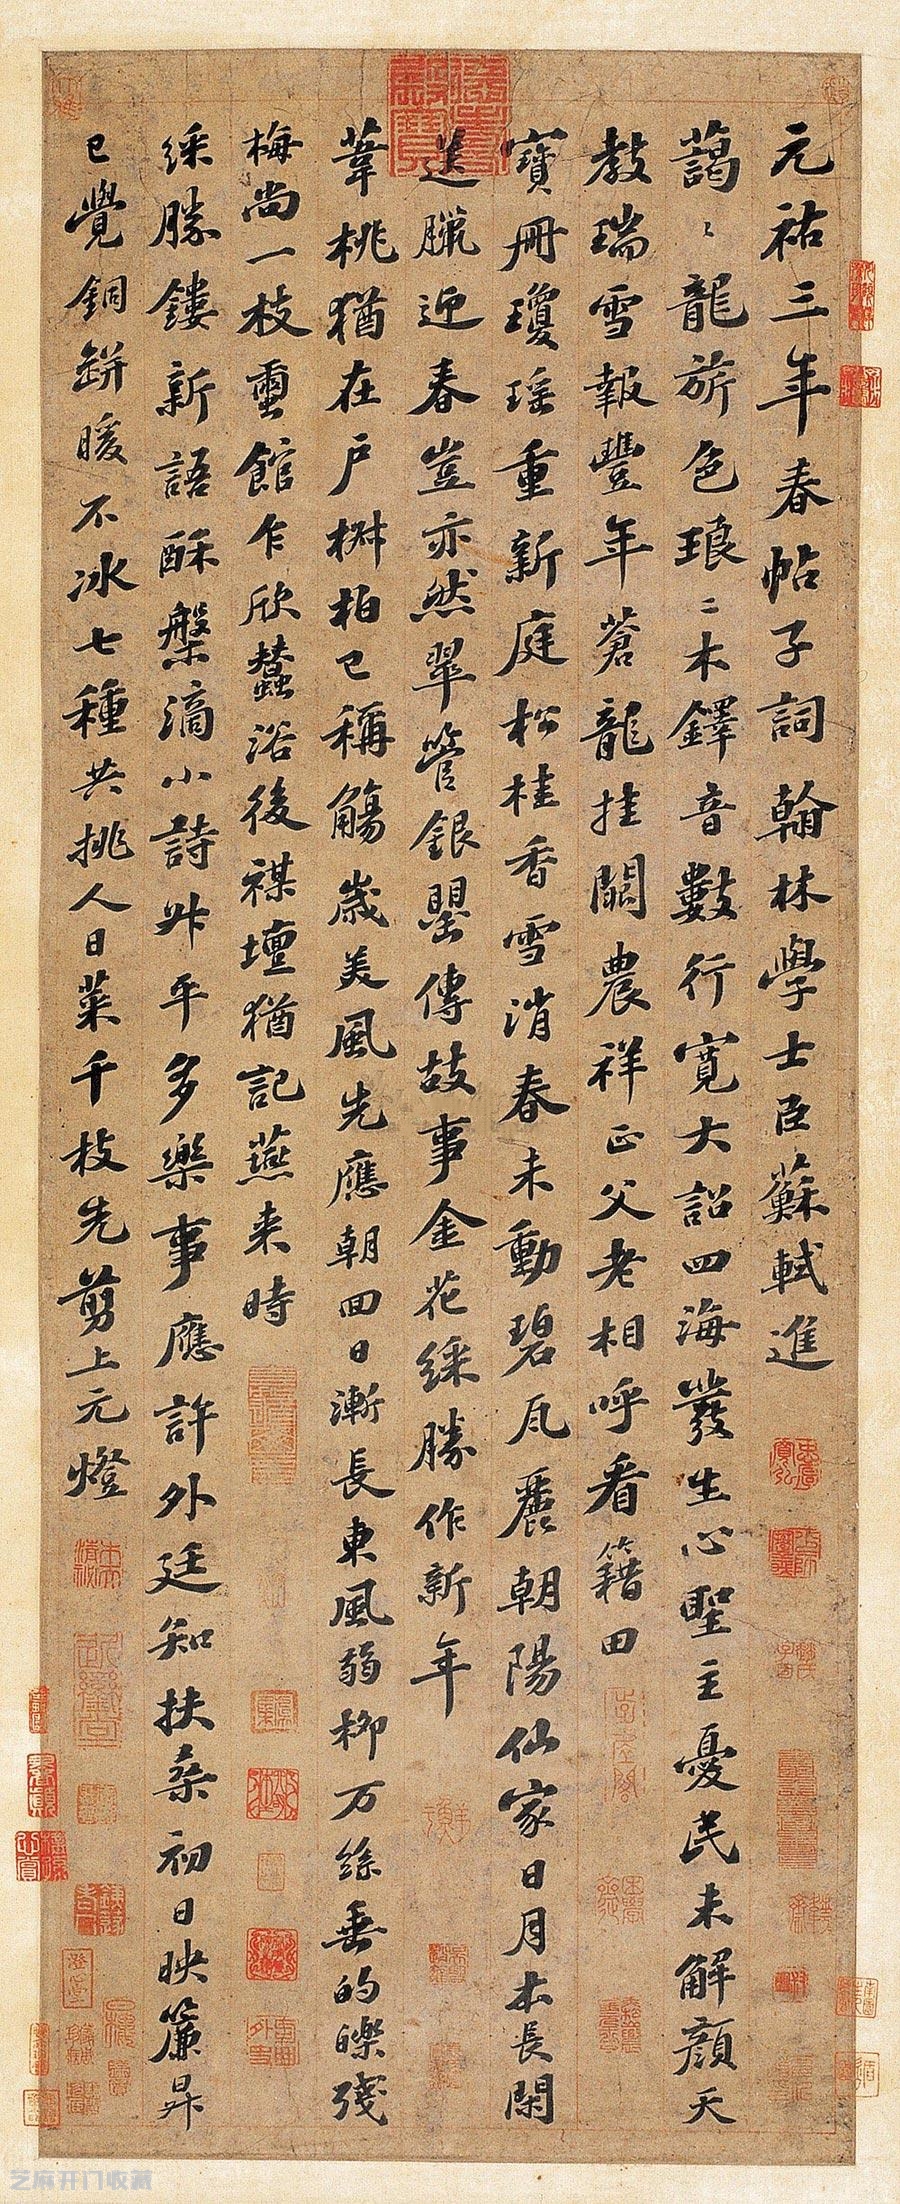 元祐三年春帖子詞翰林學士臣蘇軾進
藹〻龍旂色琅〻木鐸音數行寛大詔四海發生心聖主憂民未解顔天
教瑞雪報豐年蒼龍挂闕農祥正父老相呼看籍田
寶冊瓊瑶重新庭松桂香雪消春未動碧瓦麗朝陽仙家日月本長閑
送臘迎春豈亦然翠管銀罌傳故事金花綵勝作新年
葦桃猶在户椒柏已稱觴歲美風先應朝回日漸長東風弱柳万絲垂的皪殘
梅尚一枝璽館乍欣蠶浴後禖壇猶記燕来時
綵勝鏤新語酥槃滴小詩昇平多樂事應許外廷知扶桑初日映簾昇
已覺銅缾暖不冰七種共挑人日菜千枝先剪上元燈
芝麻开门收藏